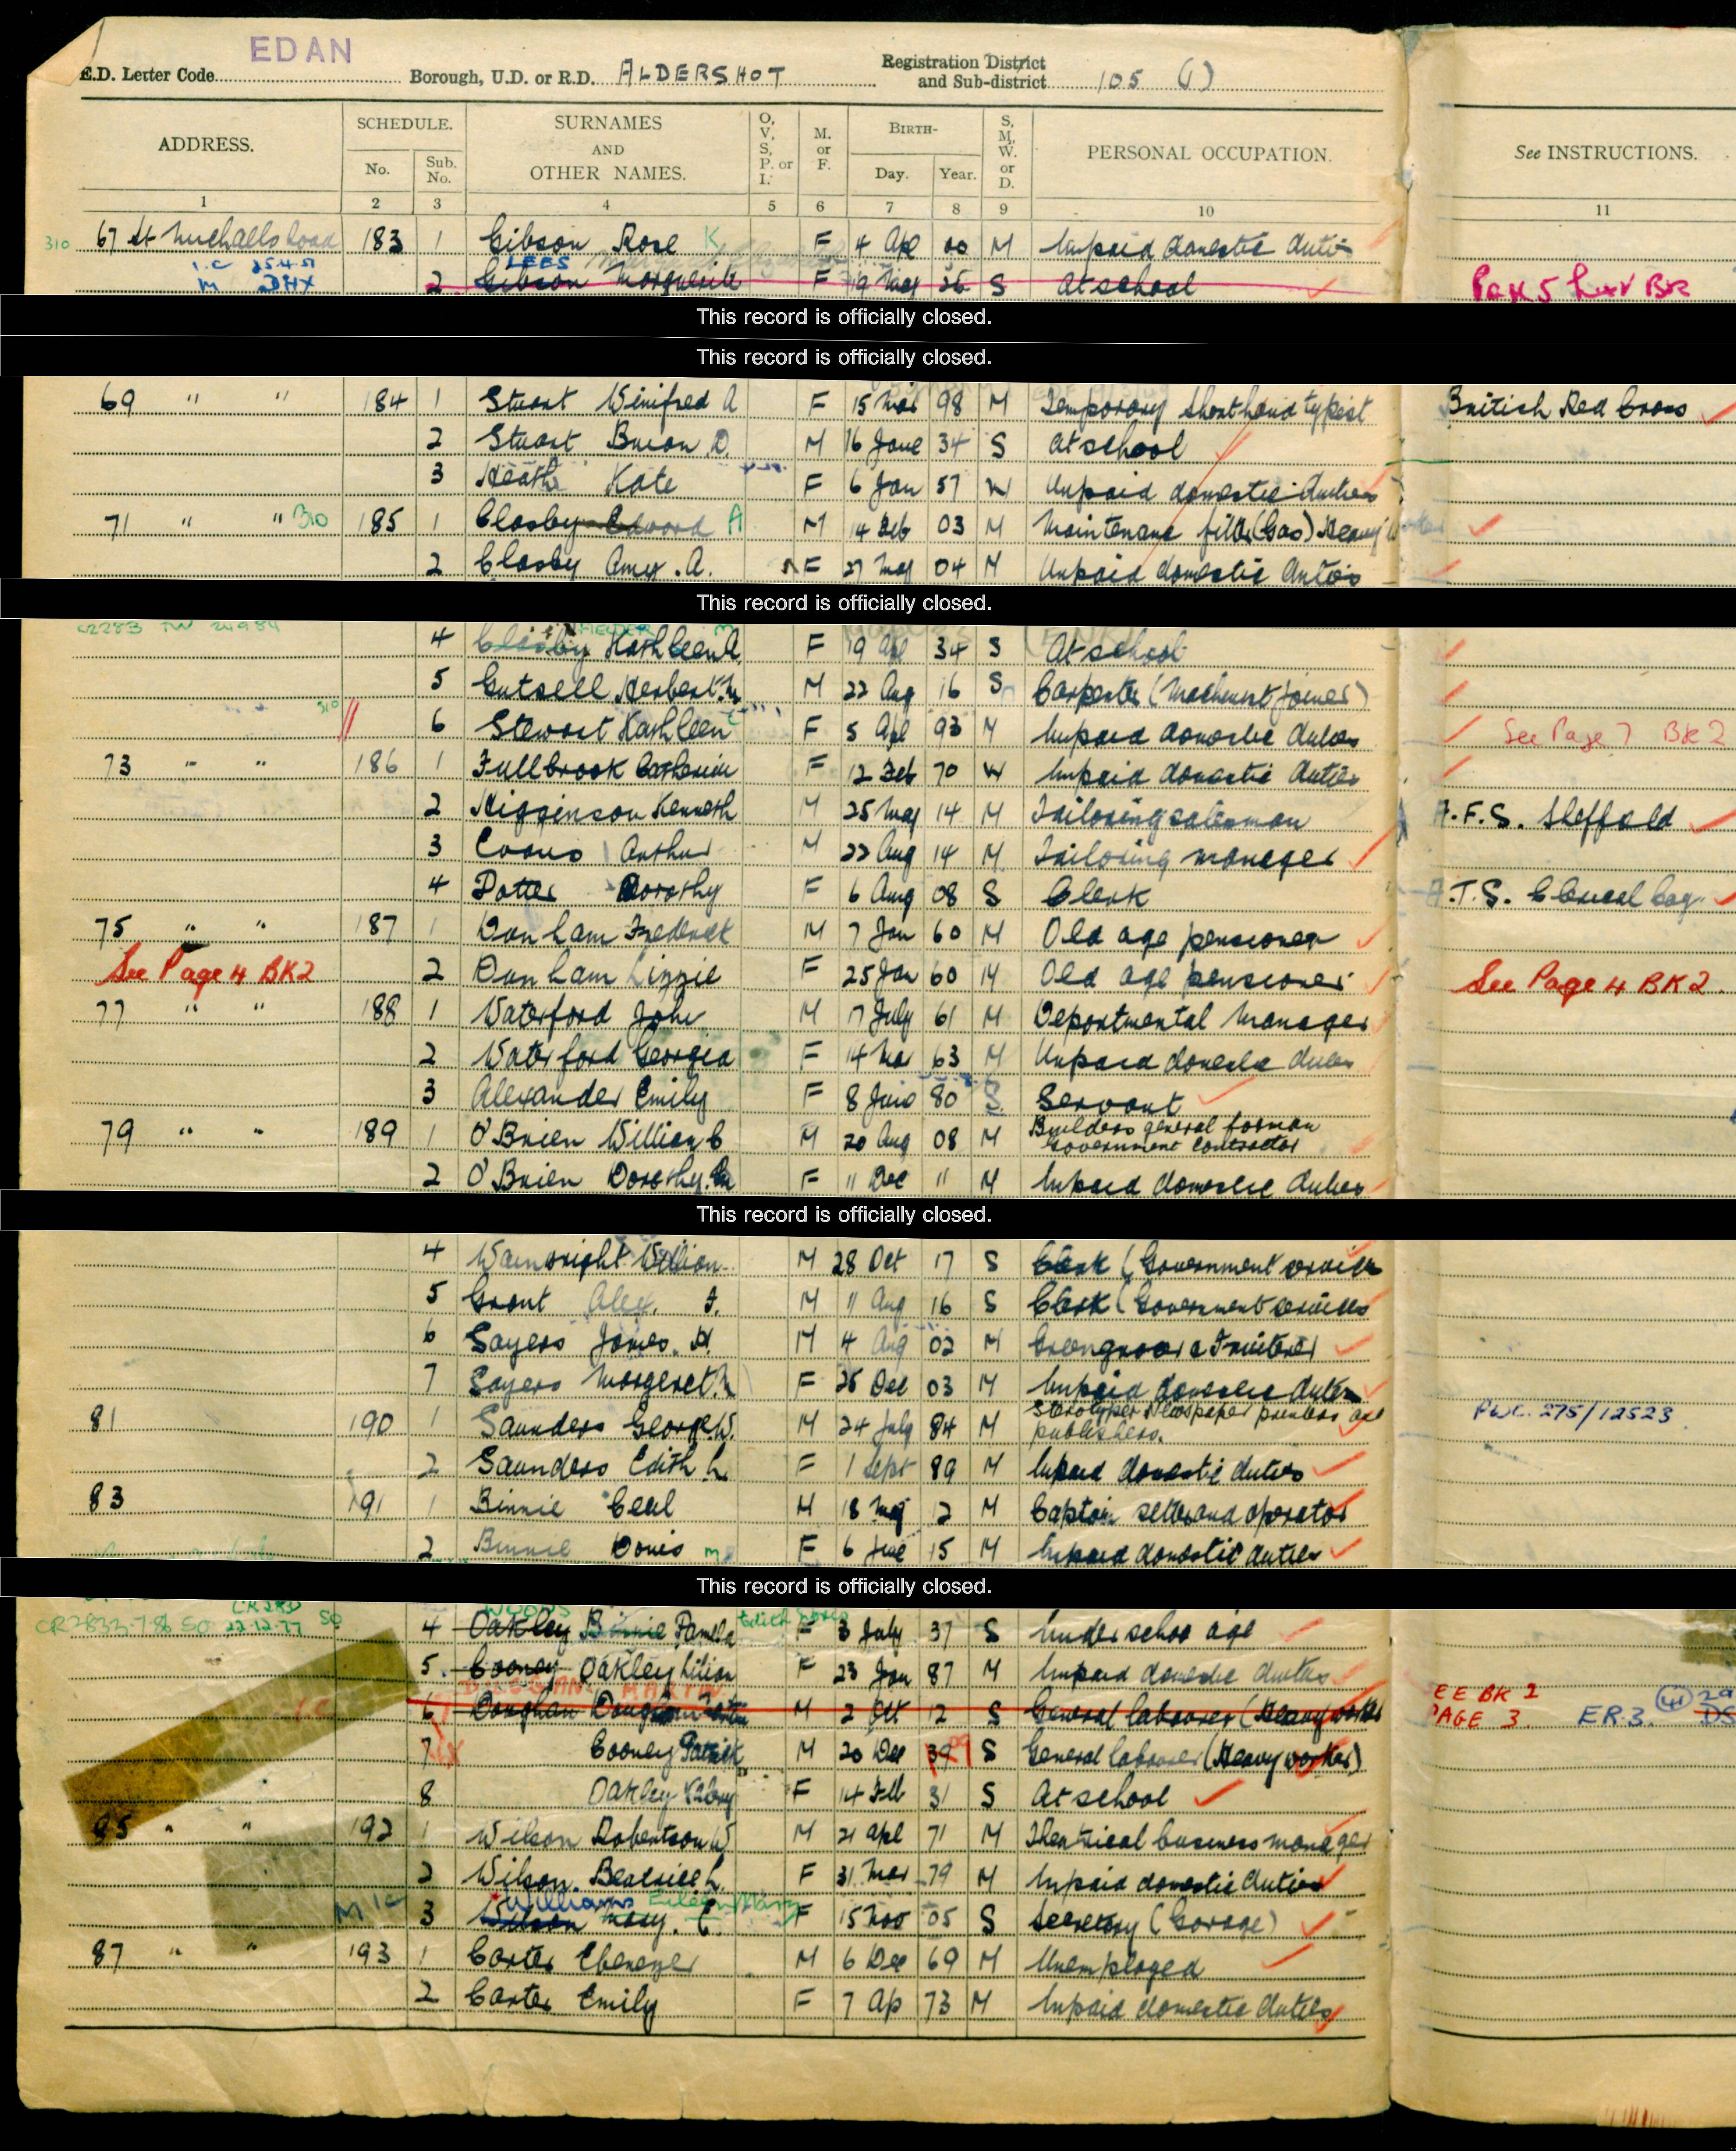 EDAN
E.D. Letter Code
Borough, U.D. or R.D. ALDERSHOT
Registration District and Sub-district 105 (1)
ADDRESS.
SCHEDULE.
No.
Sub. No.
SURNAMES AND OTHER NAMES.
O, V, S, P. or I.
M. or F.
BIRTH-
Day.
Year.
S, M, W. or D.
PERSONAL OCCUPATION.
See INSTRUCTIONS.
1 2 3 4 5 6 7 8 9 10 11
310 67 St Michaells Road 183 1 Gibson Rose K F 4 Apl 00 M Unpaid domestic duties
25.4.51 LEES
M DHX 2 Gibson Marguerite F 19 May 26 S At school
This record is officially closed.
This record is officially closed.
69 " " 184 1 Stuart Winifred A F 15 Mar 98 M Temporary shorthand typist British Red Cross
2 Stuart Brian D. M 16 June 34 S At school
3 Heath Kate F 6 Jan 57 W Unpaid domestic duties
71 " " 310 185 1 Closby Edward A M 14 Feb 03 M Maintenance fitter (Gas) Heavy Worker
2 Closby Amy. A. F 27 May 04 M Unpaid domestic duties
This record is officially closed.
4 Closby Kathleen A. F 19 Apl 34 S At school
5 Gutsell Herbert. M 22 Aug 16 S Carpenter (Machinist Joiner)
310 6 Stewart Kathleen F 5 Apl 93 M Unpaid domestic duties See Page 7 BK 2
73 " " 186 1 Fullbrook Catherine F 12 Feb 70 W Unpaid domestic duties
2 Higginson Kenneth M 25 May 14 M Tailoring salesman A.F.S. Sheffield
3 Evans Arthur M 22 Aug 14 M Tailoring manager
4 Potter Dorothy F 6 Aug 08 S Clerk A.T.S. Clerical Coy.
75 " " 187 1 Dunham Frederick M 7 Jan 60 M Old age pensioner
See Page 4 BK2 2 Dunham Lizzie F 25 Jan 60 M Old age pensioner See Page 4 BK 2.
77 " " 188 1 Waterford John M 17 July 61 M Departmental Manager
2 Waterford Georgia F 14 Mar 63 M Unpaid domestic duties
3 Alexander Emily F 8 June 80 S. Servant
79 " " 189 1 O'Brien William C M 20 Aug 08 M Builders general forman Government contractor
2 O'Brien Dorothy. F 11 Dec 11 M Unpaid domestic duties
This record is officially closed.
4 Wainwright William M 28 Oct 17 S Clerk (Government service
5 Grant Alex. J. M 11 Aug 16 S Clerk (Government services
6 Sayers James. H. M 4 Aug 02 M Greengrocer & Fruiterer
7 Sayers Margeret. F 25 Dec 03 M Unpaid domestic duties
81 190 1 Saunders George. W. M 24 July 84 M Sterotyper Newspaper printers and publishers. PWC. 275/12523
2 Saunders Edith L. F 1 Sept 89 M Unpaid domestic duties
83 191 1 Binnie Cecil M 18 May 12 M Capstan setter and operator
2 Binnie Doris F 6 June 15 M Unpaid domestic duties
This record is officially closed.
22.12.77
4 Oakley Binnie Pamela F 3 July 37 S Under schoo age
5. Cooney Oakley Lilian F 23 Jan 87 M Unpaid domestic duties
SEE BK 2 PAGE 3. ER.3.
6 M 2 Oct 12 S General labourer (Heavy worker
7 Cooney Patrick M 20 Dec 39 S General labourer (Heavy worker)
8 Oakley F 14 Feb 31 S At school
85 " " 192 1 Wilson Robertson W M 21 Apl 71 M Theatrical business manager
2 Wilson. Beatrice L. F 31 Mar 79 M Unpaid domestic duties
Williams Eileen Mary
3 Wilson Mary. E. F 15 Nov 05 S Secretary (Garage)
87 " " 193 1 Carter Ebenezer M 6 Dec 69 M Unemployed
2 Carter Emily F 7 Ap 73 M Unpaid domestic duties